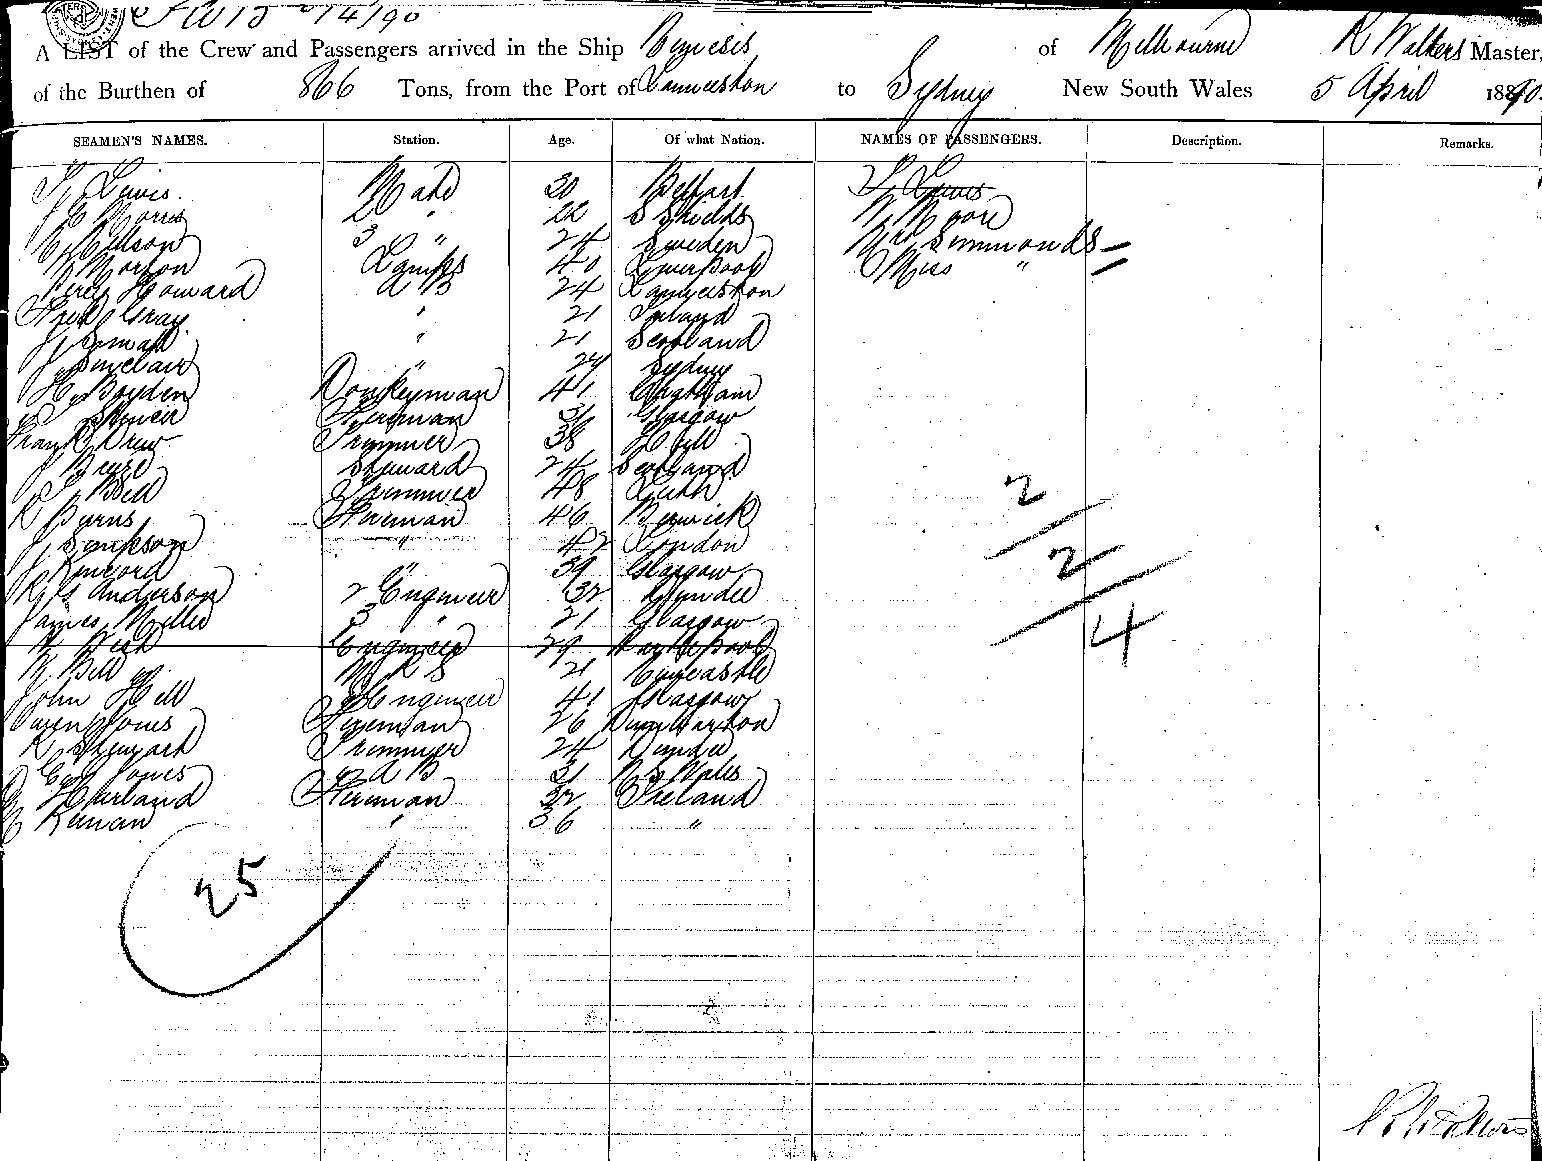 A LIST of the Crew and Passengers arrived in the Ship Nemesis of Melbourne R Walters Master,
of the Burthen of 866 Tons, from the Port of Launceston to Sydney New South Wales 5 April 1890
SEAMEN'S NAMES. Station. Age. Of what Nation. NAMES OF PASSENGERS. Description. Remarks.
Lewis Mate 30 Belfast Lewis
2 " 22 S Shields W Moore
Nilsson 3 " 24 Sweden Mrs Simmonds
Morton Lamps 40 Liverpool Miss "
Howard A B 24 Launceston
Fred Gray " 21 Ireland
" 21 Scotland
J Sinclair " 24 Sydney
H Boyden Donkeyman 41 Chatham
Fireman Glasgow
Frank Drew Trimmer 38 Hull
J Steward 24 Scotland
Bell Trimmer 48 Leith
R Burns Fireman 46 Berwick
J Simpson " 42 London
J Kincord " 39 Glasgow
Anderson 2 Engineer 32 Dundee
James Miller 3 " 21 Glasgow
W Engineer 29 Hartlepool
W Bell M R S 21 Newcastle
John Hill Engineer 41 Glasgow
Owen Jones Fireman 26 Dumbarton
R Stewart Trimmer 24 Dundee
Jones A B 31 N S Wales
Hurland Fireman 32 Ireland
Keenan " 36 "
25
2
2
4